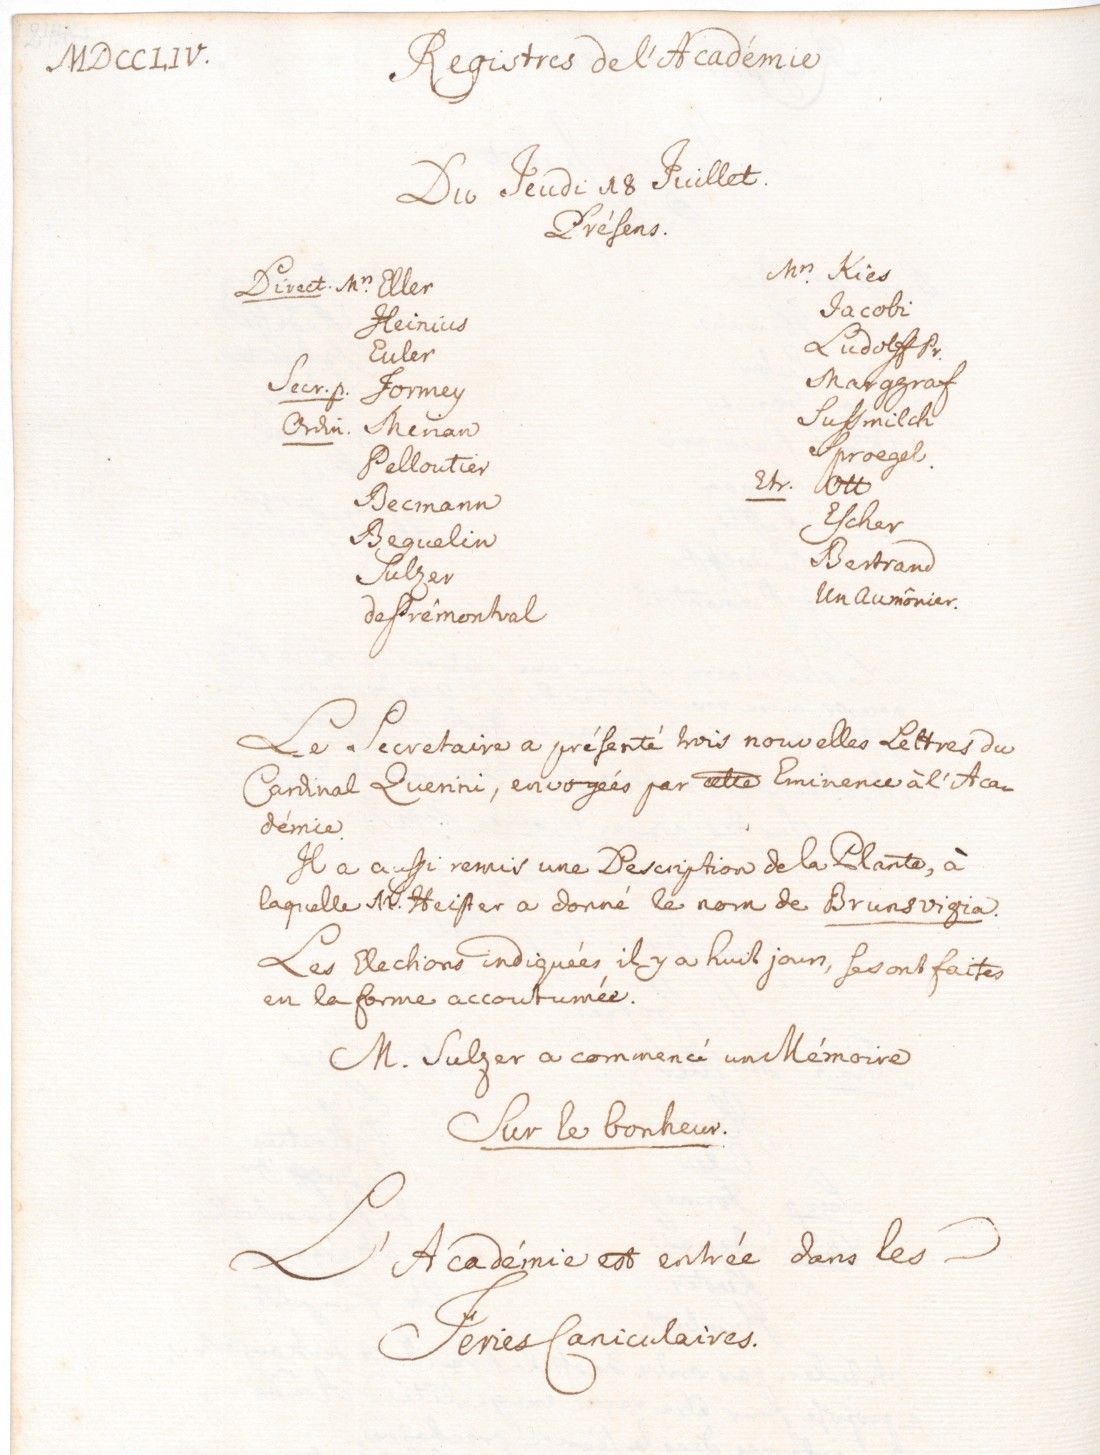 MDCCLIV.
Registres de l'Académie
Du Jeudi 18 Juillet.
Présens.
Direct. Mrs. Eller
Heinius
Euler
Secr. p. Formey
Ordin. Merian
Pelloutier
Becmann
Beguelin
Sulzer
de Prémontval
Mrs. Kies
Jacobi
Ludolff Pr.
Marggraf
Sussmilch
Sproegel.
Etr. Ott
Escher
Bertrand
Un Aumônier.
Le Secretaire a présenté trois nouvelles Lettres du
Cardinal Querini, envoyées par cette Eminence à l'Aca-
démie.
Il a aussi remis une Description de la Plante, à
laquelle M. Heister a donné le nom de Brunsvigia.
Les Elections indiquées il y a huit jours, se sont faites
en la forme accoutumée.
M. Sulzer a commencé un Mémoire
Sur le bonheur.
L'Académie est entrée dans les
Feries Caniculaires.